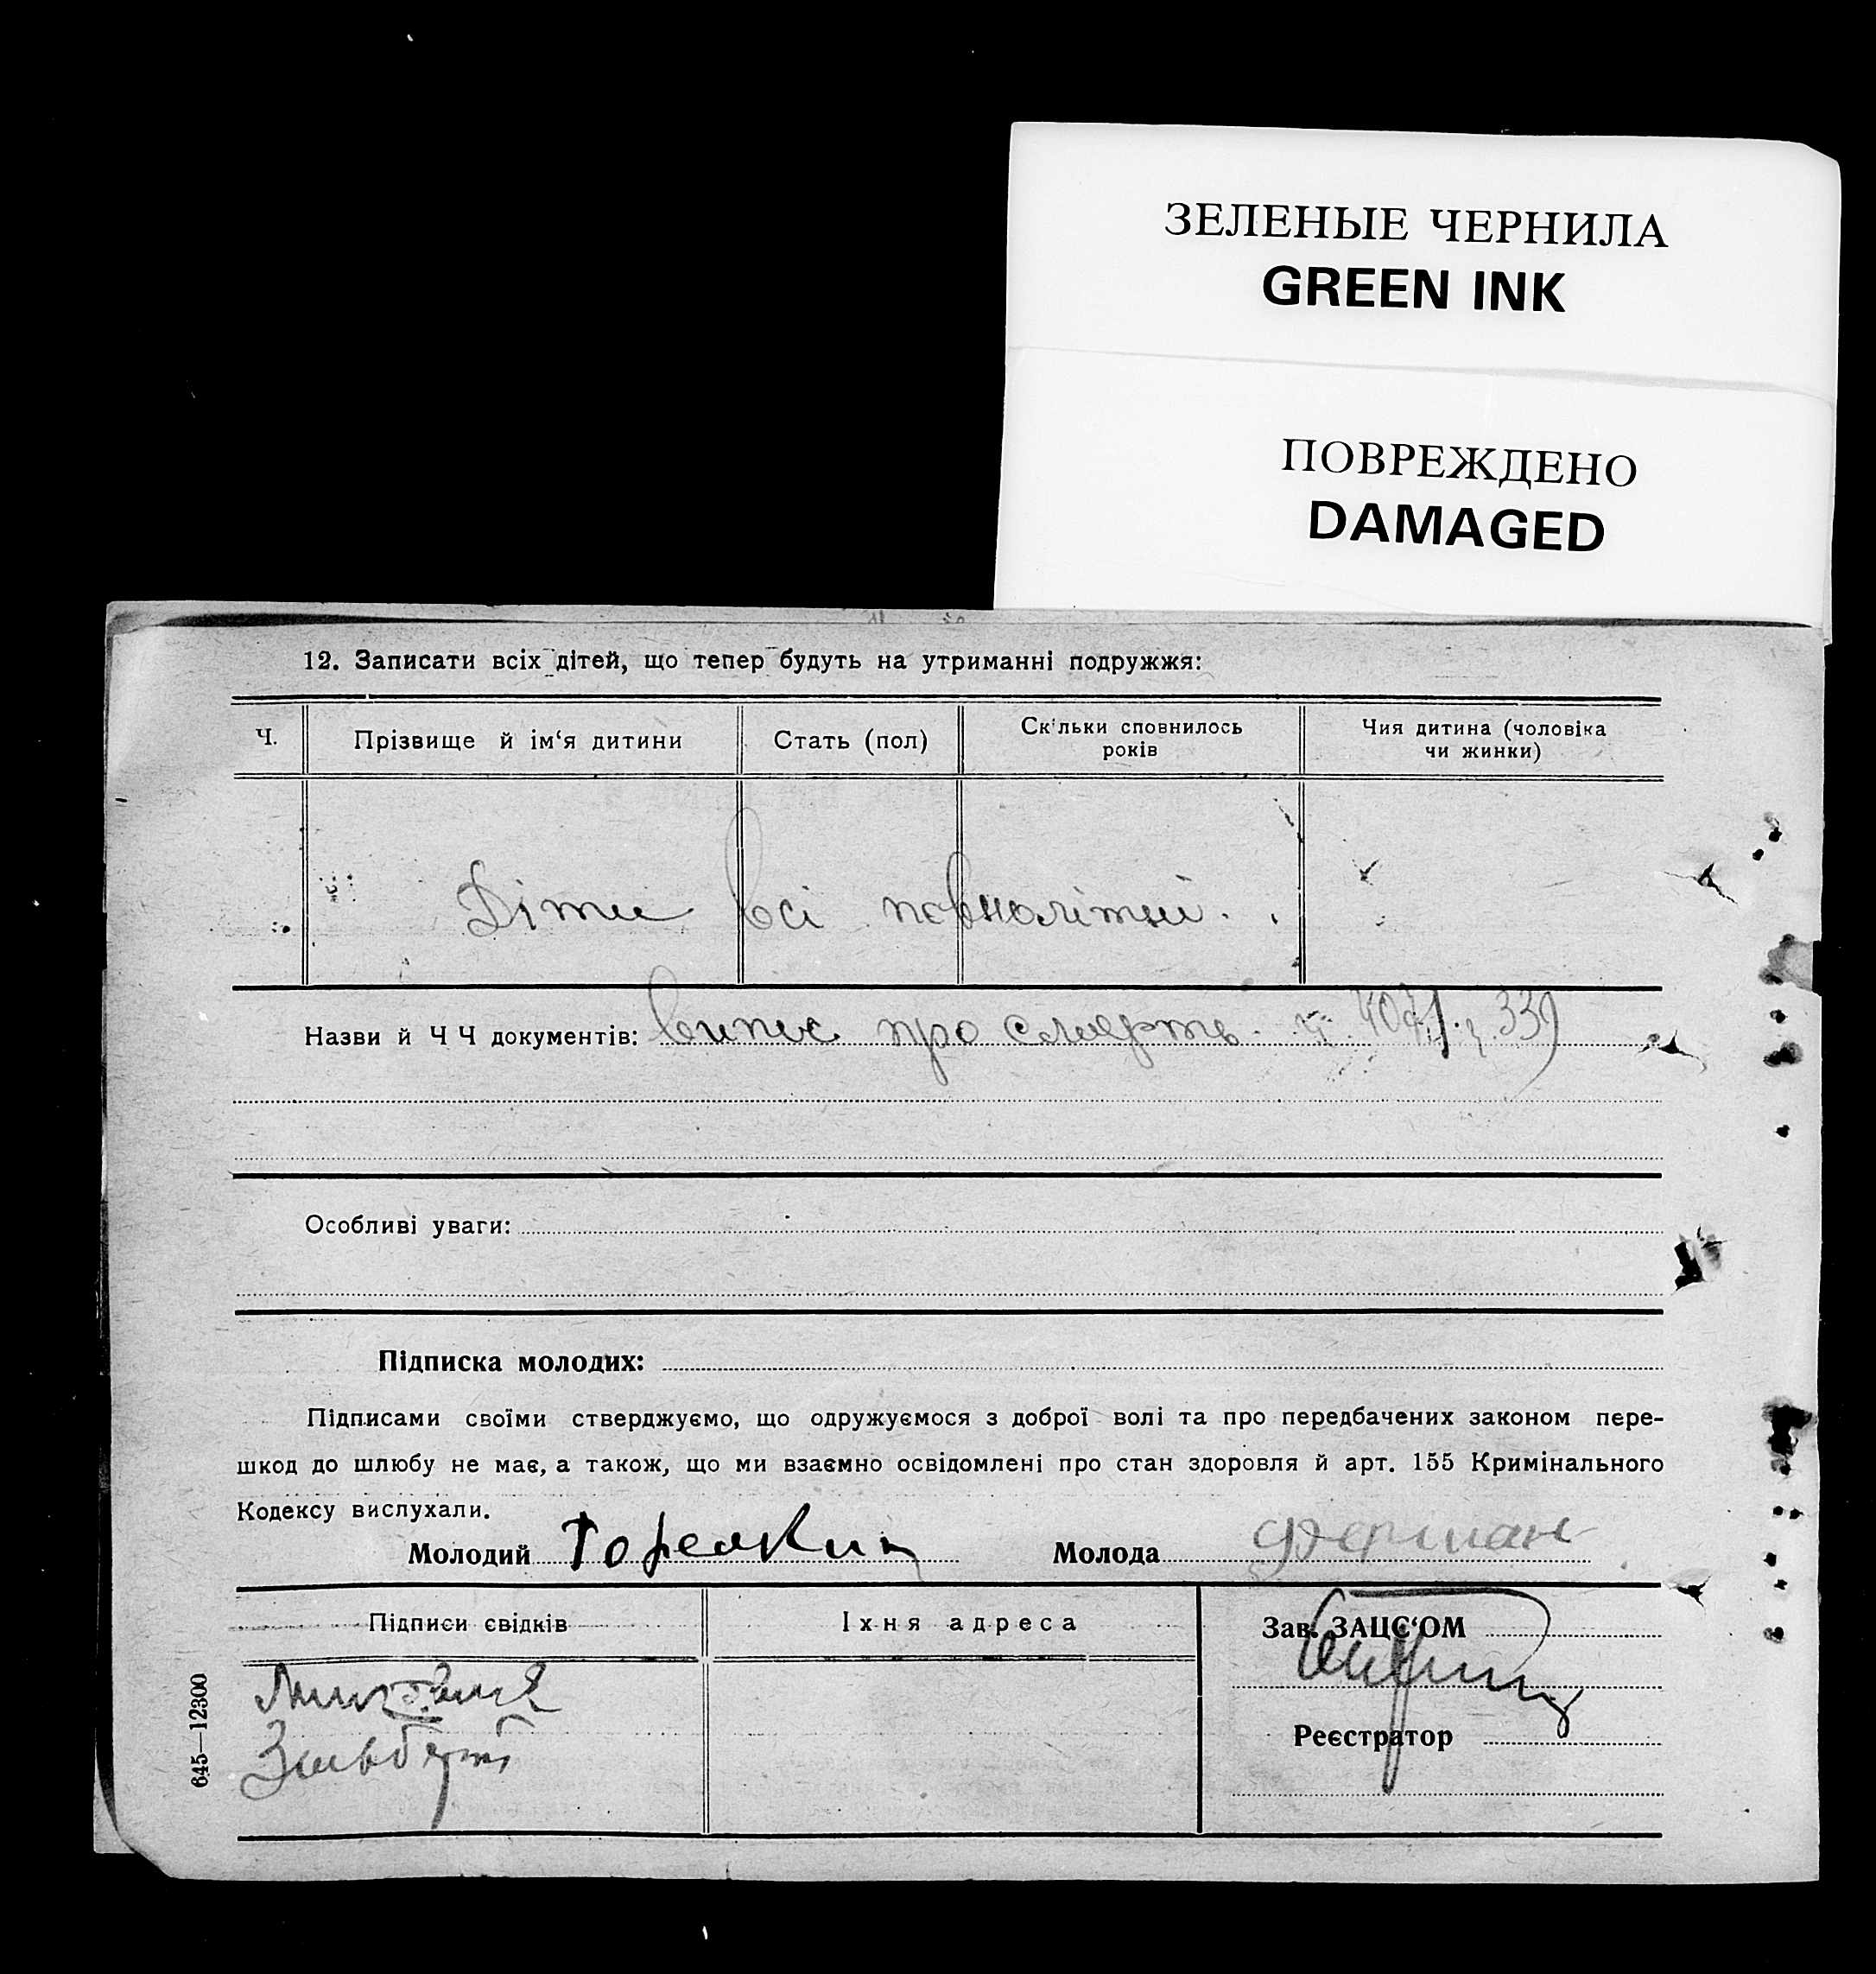 ЗЕЛЕНЫЕ ЧЕРНИЛА
GREEN INK
ПОВРЕЖДЕНО
DAMAGED
12. Записати всіх дітей, що тепер будуть на утриманні подружжя:
Ч. Прізвище й ім‘я дитини Стать (пол) Скільки сповнилось років Чия дитина (чоловіка чи жинки)
Діти всі повнолітні.
Назви й Ч Ч документів: Випис про смерть
Особливі уваги:
Підписка молодих:
Підписами своїми стверджуємо, що одружуємося з доброї волі та про передбачених законом пере-
шкод до шлюбу не має, а також, що ми взаємно освідомлені про стан здоровля й арт. 155 Кримінального
Кодексу вислухали.
Молодий Горелкин Молода Ферман
Підписи свідків Їхня адреса Зав. ЗАЦС‘ОМ
Реєстратор
645—12300